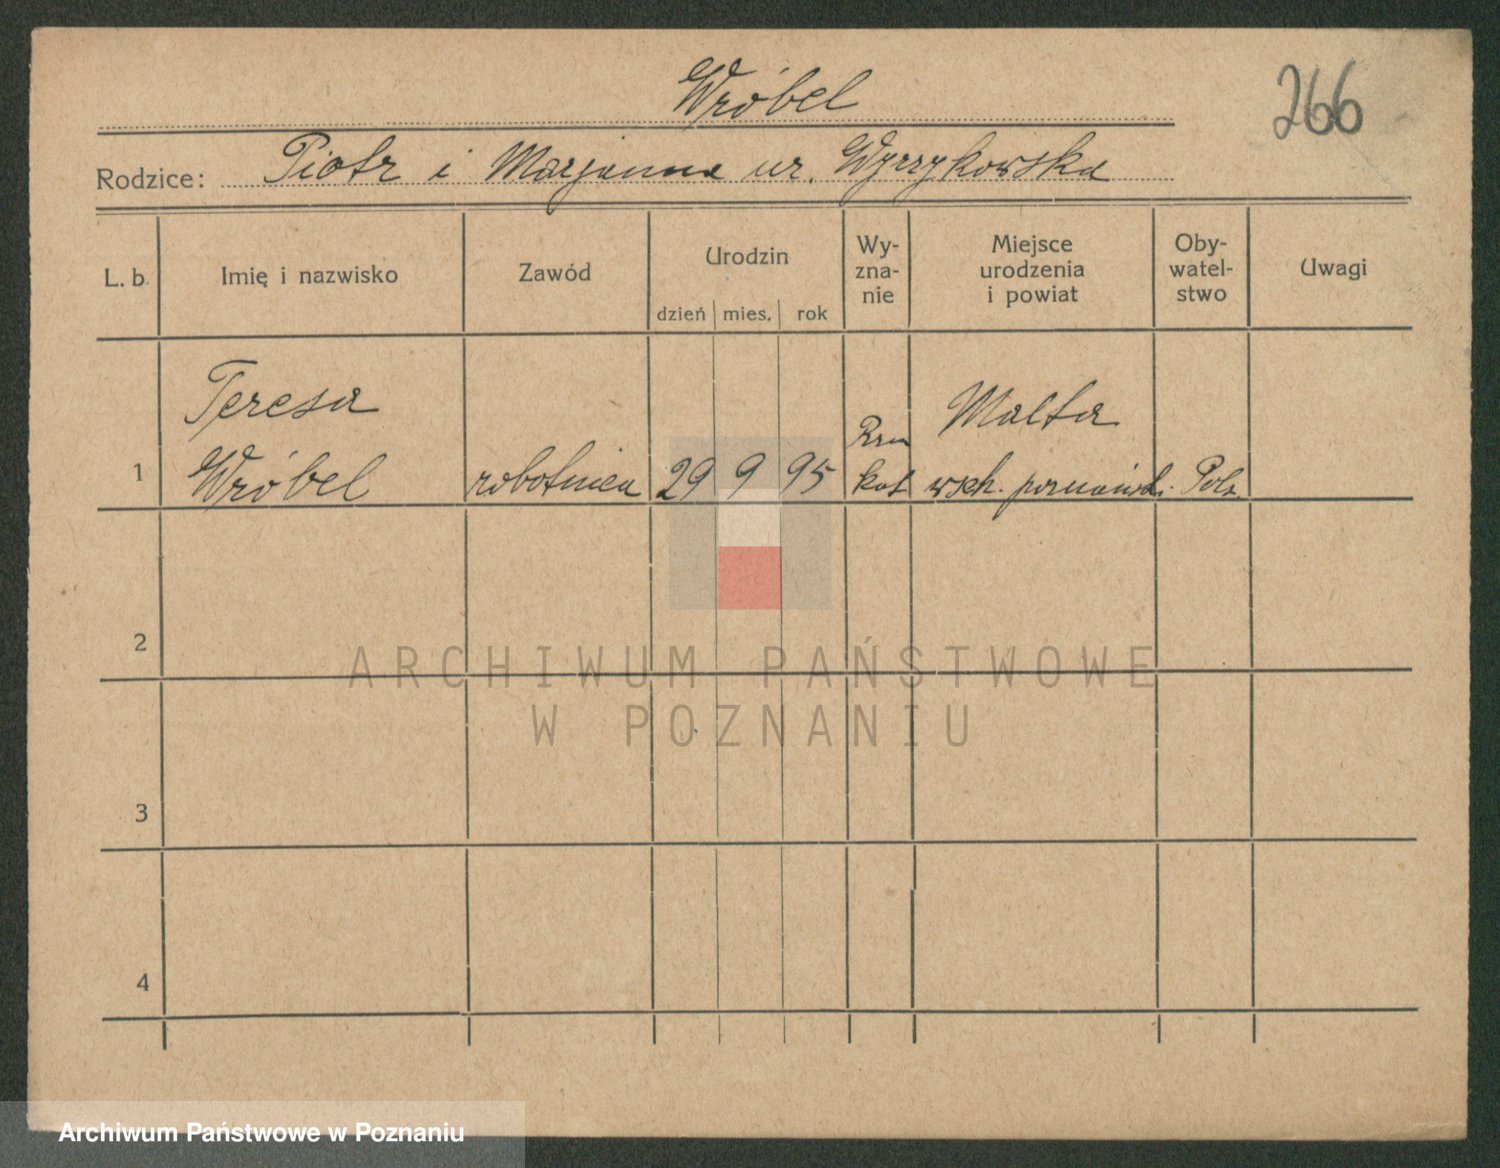 Wróbel
266
Rodzice: Piotr i Marjanna ur. Wyrzykowska
L. b. Imię i nazwisko Zawód Urodzin dzień mies. rok Wy-zna-nie Miejsce urodzenia i powiat Oby-watel-stwo Uwagi
Teresa Malta
1 Wróbel robotnica 29 9 95 kat wsch. poznański. Pols.
2
ARCHIWUM PAŃSTWOWE
W POZNANIU
3
4
Archiwum Państwowe w Poznaniu